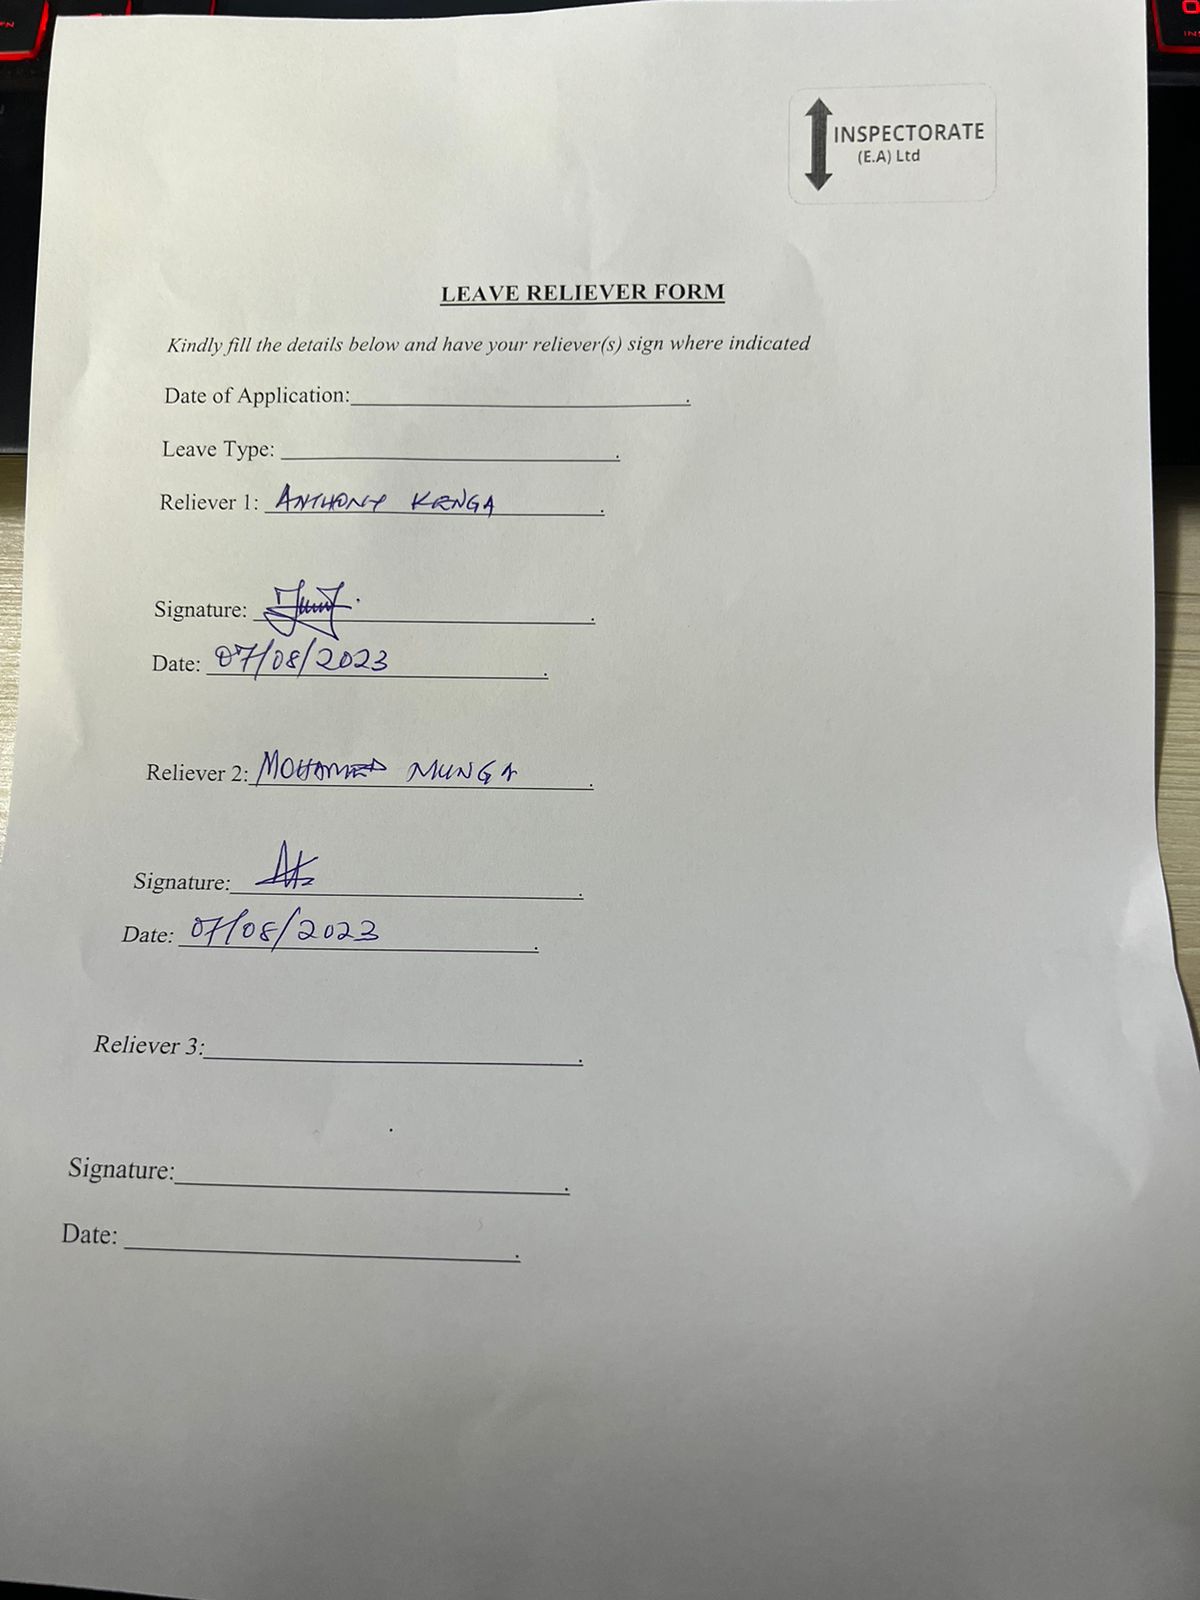 INSPECTORATE
(E.A) Ltd
LEAVE RELIEVER FORM
Kindly fill the details below and have your reliever(s) sign where indicated
Date of Application:
Leave Type:
Reliever 1: ANTHONY KENGA
Signature:
Date: 07/08/2023
Reliever 2: MOHAMED MUNGA
Signature:
Date: 07/08/2023
Reliever 3:
Signature:
Date: